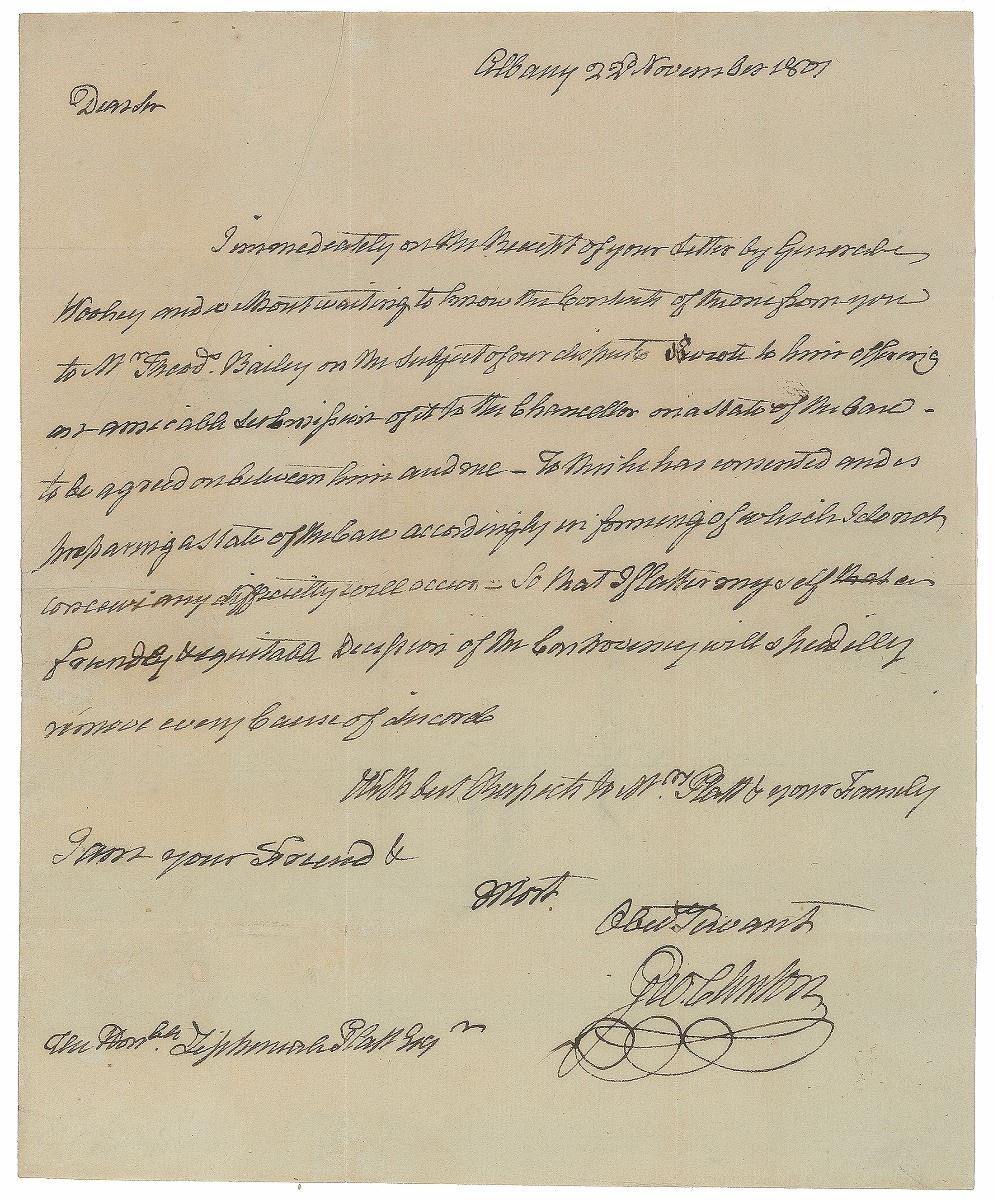 Albany 22d November 1801
Dear Sir
I immediately on the Receipt of your Letter by General
Woolsey and without waiting to know the Contents of the one from you
to Mr Theods. Bailey on the Subject of our dispute wrote to him offering
an amicable Submission of it to the Chancellor on a State of the Case -
to be agreed on between him and me - To this he has consented and is
preparing a State of the Case accordingly in forming of which I do not
conceive any difficulty will occur - So that I flatter myself that a
friendly & equitable Decission of the Controversy will speedilly
remove every Cause of discord
With best Respects to Mrs. Platt & your Family
I am your Friend &
Most
Obedt. Servant
Geo. Clinton
The Honble. Zephaniah Platt Esqr